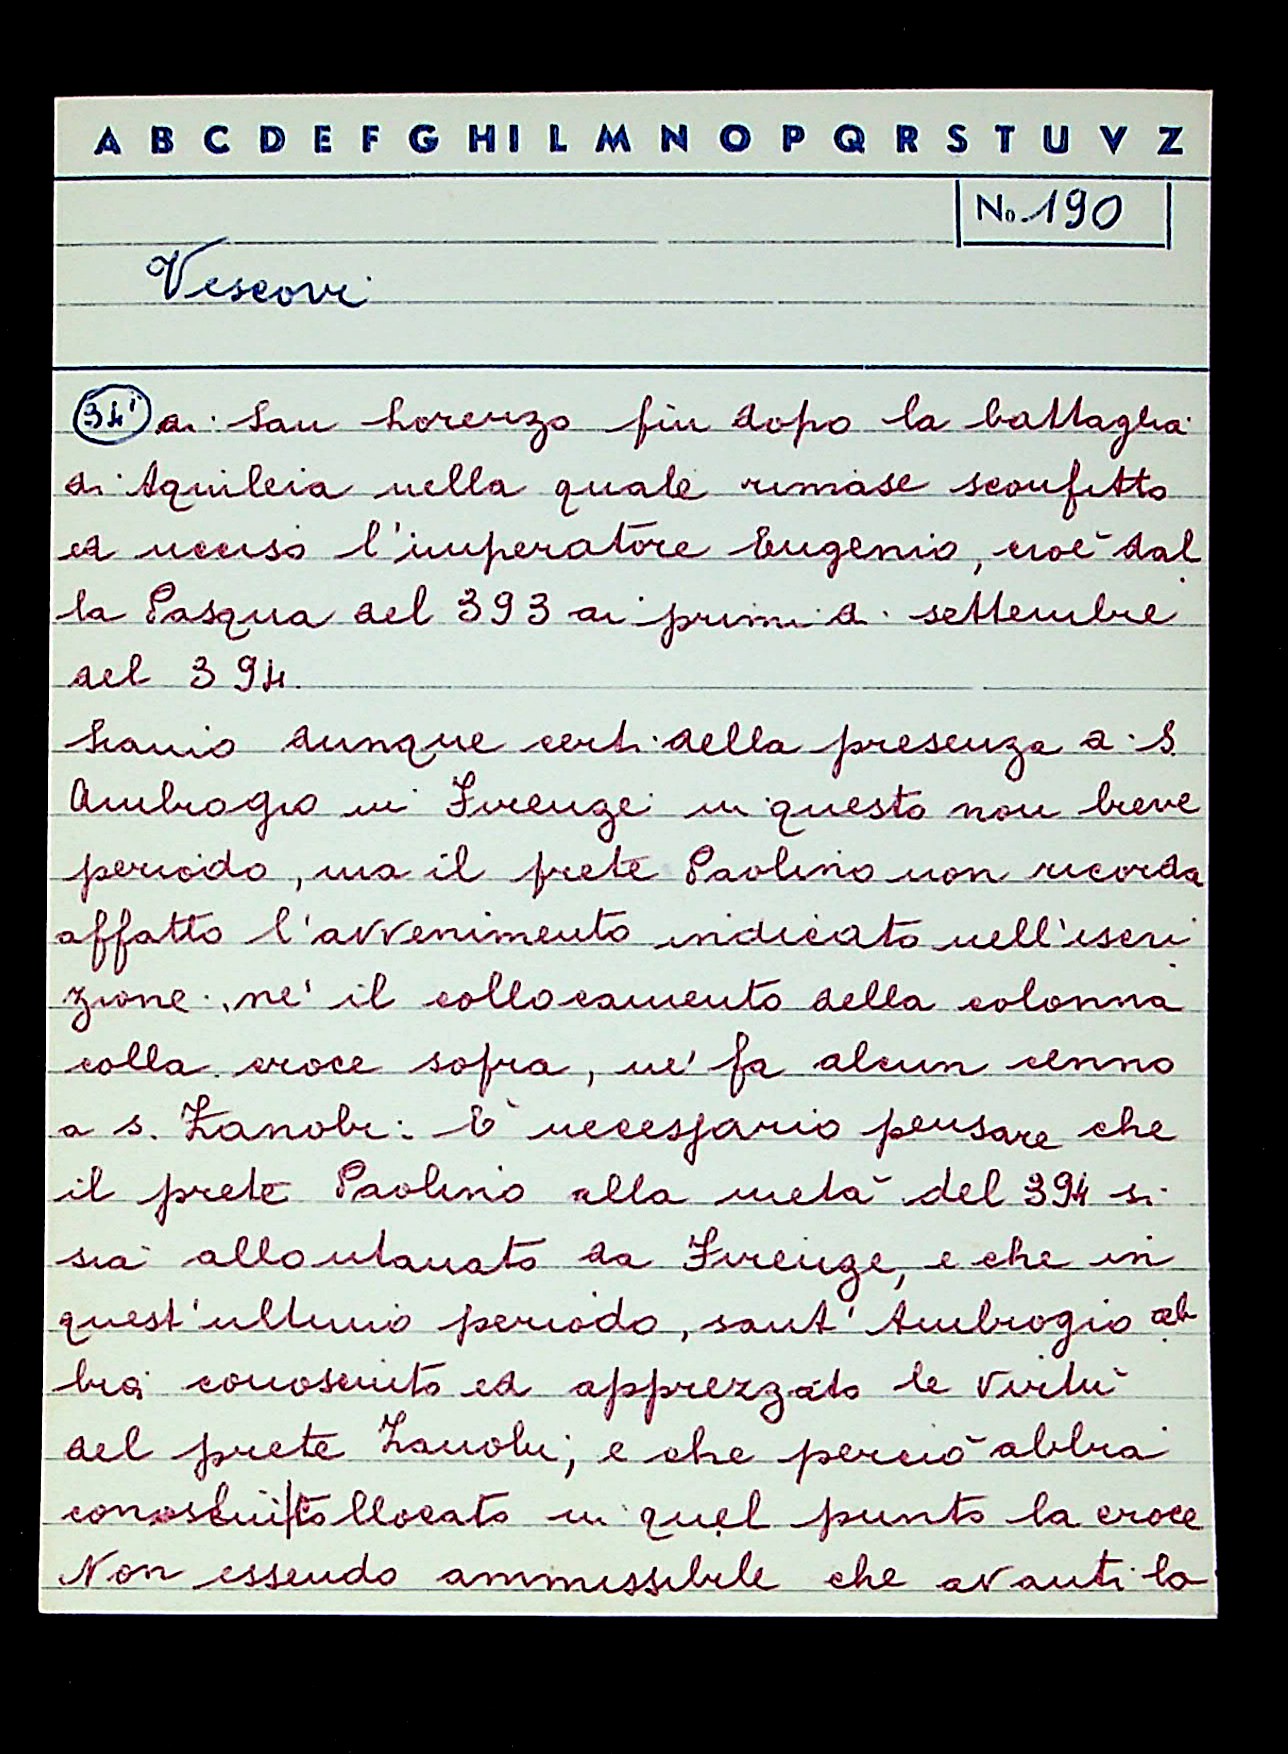 A B C D E F G H I L M N O P Q R S T U V Z
No. 190
Vescovi
34' di San Lorenzo fin dopo la battaglia
di Aquileia nella quale rimase sconfitto
ed ucciso l'imperatore Eugenio, cioè dal
la Pasqua del 393 ai primi di settembre
del 394.
Siamo dunque certi della presenza di S.
Ambrogio in Firenze in questo non breve
periodo, ma il prete Paolino non ricorda
affatto l'avvenimento indicato nell'iscri
zione, nè il collocamento della colonna
colla croce sopra, nè fa alcun cenno
a s. Zanobi. È necessario pensare che
il prete Paolino alla metà del 394 si
sia allontanato da Firenze, e che in
quest'ultimo periodo, sant'Ambrogio ab
bia conosciuto ed apprezzato le virtù
del prete Zanobi; e che perciò abbia
collocato in quel punto la croce
Non essendo ammissibile che avanti la